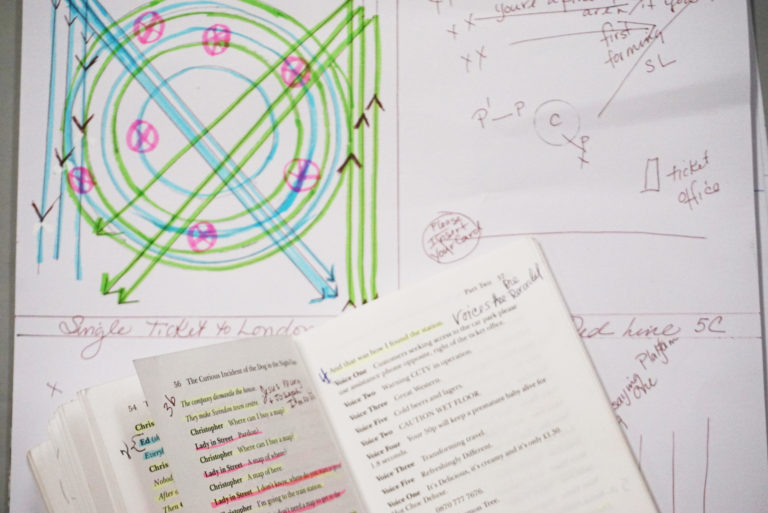 you're
first
forming
SL
XX
XX
P' — P
C
P
X
ticket
office
Please
Insert
Your Card
Single Ticket to London
Red line 5C
X
Platform
one
Part Two
Voices Are Pre
Recorded
And that was how I found the station.
Voice One Customers seeking access to the car park please
use assistance phone opposite, right of the ticket office.
Voice Two Warning CCTV in operation.
Voice Three Great Western.
Voice Five Cold beers and lagers.
Voice Two CAUTION WET FLOOR.
Voice Four Your 50p will keep a premature baby alive for
1.8 seconds.
Voice Three Transforming travel.
Voice Five Refreshingly Different.
Voice One It's Delicious, it's creamy and it's only £1.30
Hot Choc Deluxe.
0870 777 7676.
Tree.
56 The Curious Incident of the Dog in the Night-Time
36
The company dismantle the house.
They make Swindon town centre.
Christopher Where can I buy a map?
Lady in Street Pardon?
Christopher Where can I buy a map?
Lady in Street A map of where?
Christopher A map of here.
Lady in Street I don't know, where do you want to get to?
Christopher I'm going to the train station.
don't need a map to get to the
54
Chris
Ed
Every
Chris
Nobod
After
Then